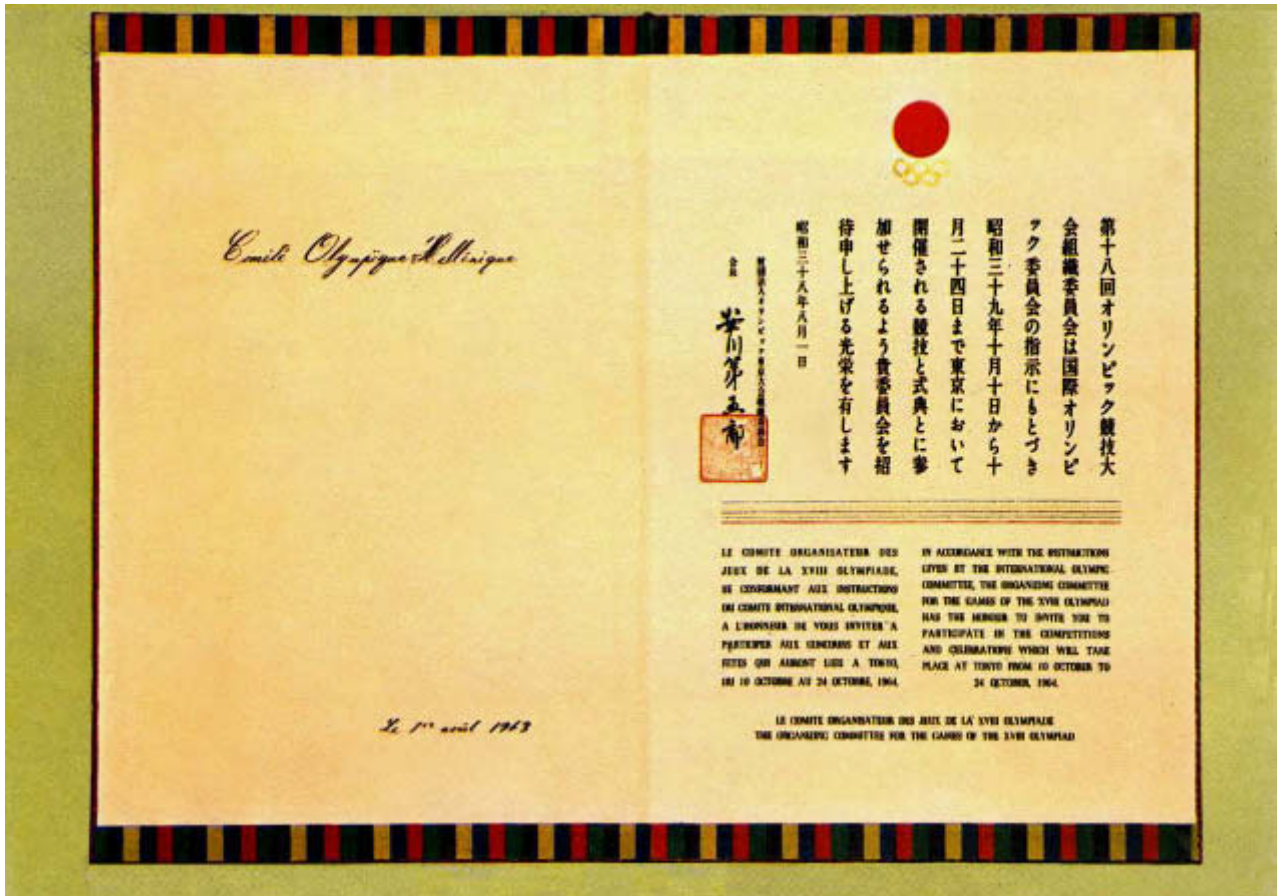 Comité Olympique Hellénique
Le 1er août 1963
第十八回オリンピック競技大
会組織委員会は国際オリンピ
ック委員会の指示にもとづき
昭和三十九年十月十日から十
月二十四日まで東京において
開催される競技と式典とに参
加せられるよう貴委員会を招
待申し上げる光栄を有します
昭和三十八年八月一日
財団法人オリンピック東京大会組織委員会
会長 安川第五郎
LE COMITE ORGANISATEUR DES
JEUX DE LA XVIII OLYMPIADE,
SE CONFORMANT AUX INSTRUCTIONS
DU COMITE INTERNATIONAL OLYMPIQUE,
A L'HONNEUR DE VOUS INVITER A
PARTICIPER AUX CONCOURS ET AUX
FETES QUI AURONT LIEU A TOKYO,
DU 10 OCTOBRE AU 24 OCTOBRE, 1964.
IN ACCORDANCE WITH THE INSTRUCTIONS
GIVEN BY THE INTERNATIONAL OLYMPIC
COMMITTEE, THE ORGANIZING COMMITTEE
FOR THE GAMES OF THE XVIII OLYMPIAD
HAS THE HONOUR TO INVITE YOU TO
PARTICIPATE IN THE COMPETITIONS
AND CELEBRATIONS WHICH WILL TAKE
PLACE AT TOKYO FROM 10 OCTOBER TO
24 OCTOBER, 1964.
LE COMITE ORGANISATEUR DES JEUX DE LA XVIII OLYMPIADE
THE ORGANIZING COMMITTEE FOR THE GAMES OF THE XVIII OLYMPIAD